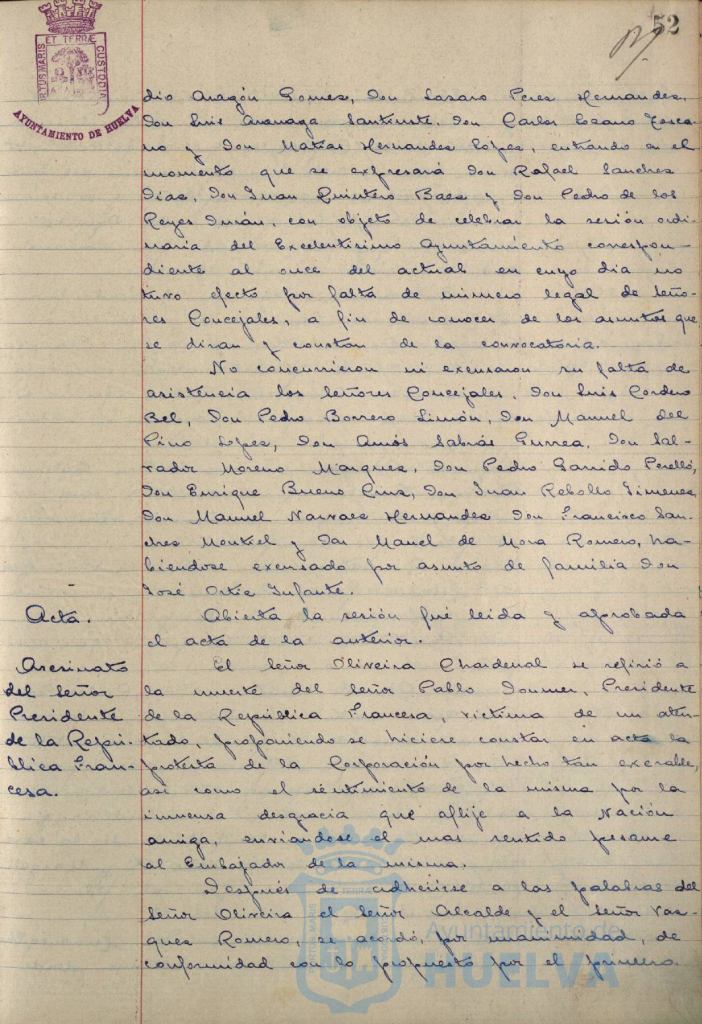 52
PORTUS MARIS ET TERRÆ CUSTODIA
AYUNTAMIENTO DE HUELVA
dio Aragón Gomez, Don Lazaro Perez Hernandez,
Don Luis Aranaga Santurste, Don Carlos Lozano Tosca-
no y Don Matias Hernandez López, entrando en el
momento que se expresará Don Rafael Sanchez
Diaz, Don Juan Quintero Baez y Don Pedro de los
Reyes Durán, con objeto de celebrar la sesión ordi-
naria del Excelentisimo Ayuntamiento correspon-
diente al once del actual en cuyo dia no
tuvo efecto por falta de número legal de Seño-
res Concejales, a fin de conocer de los asuntos que
se diran y constan de la convocatoria.
No concurrieron ni excusaron su falta de
asistencia los Señores Concejales, Don Luis Cordero
Bel, Don Pedro Borrero Limón, Don Manuel del
Pino Lopez, Don Amós Sabrás Gurrea, Don Sal-
vador Moreno Marquez, Don Pedro Garrido Perelló,
Don Enrique Bueno Cruz, Don Juan Rebollo Jimenez,
Don Manuel Narvaez Hernandez Don Francisco San-
chez Montiel y Don Manuel de Mora Romero, ha-
biendose excusado por asunto de familia Don
José Ortiz Infante.
Acta.
Abierta la sesión fué leida y aprobada
el acta de la anterior.
Asesinato
del señor
Presidente
de la Repú-
blica Fran-
cesa.
El Señor Oliveira Chardenal se refirió a
la muerte del Señor Pablo Doumer, Presidente
de la República Francesa, victima de un aten-
tado, proponiendo se hiciere constar en acta la
protesta de la Corporación por hecho tan execrable,
asi como el sentimiento de la misma por la
inmensa desgracia que aflije a la Nación
amiga, enviandose el mas sentido pesame
al Embajador de la misma.
Después de adherirse a las palabras del
Señor Oliveira el Señor Alcalde y el Señor Vaz-
quez Romero, se acordó, por unanimidad, de
conformidad con lo propuesto por el primero.
Ayuntamiento de
HUELVA